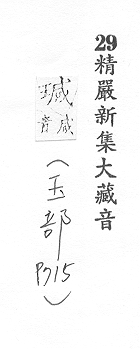 29精嚴新集大藏音
瑊
咸音
(玉部
P715)